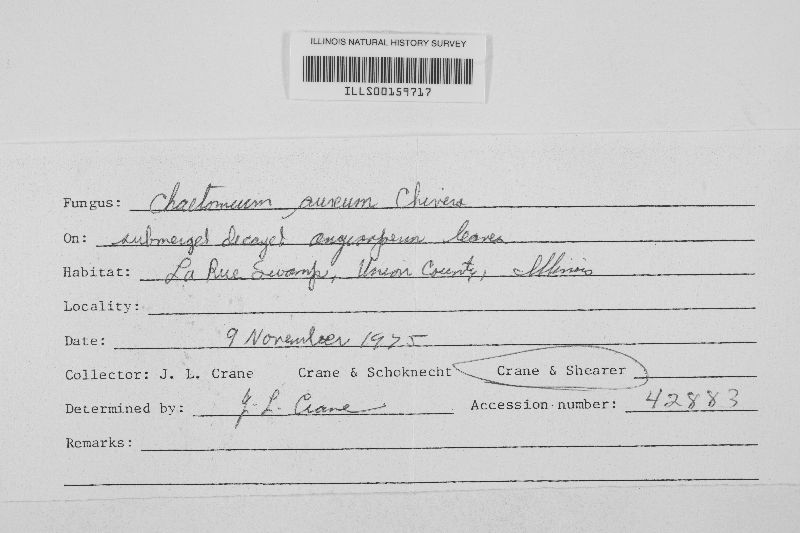 ILLINOIS NATURAL HISTORY SURVEY
ILLS00159717
Fungus: Chaetomium aureum Chivers
On: submerged decayed angiosperm leaves
Habitat: La Rue Swamp, Union County, Illinois
Locality:
Date: 9 November 1975
Collector: J. L. Crane Crane & Schoknecht Crane & Shearer
Determined by: J. L. Crane Accession number: 42883
Remarks: